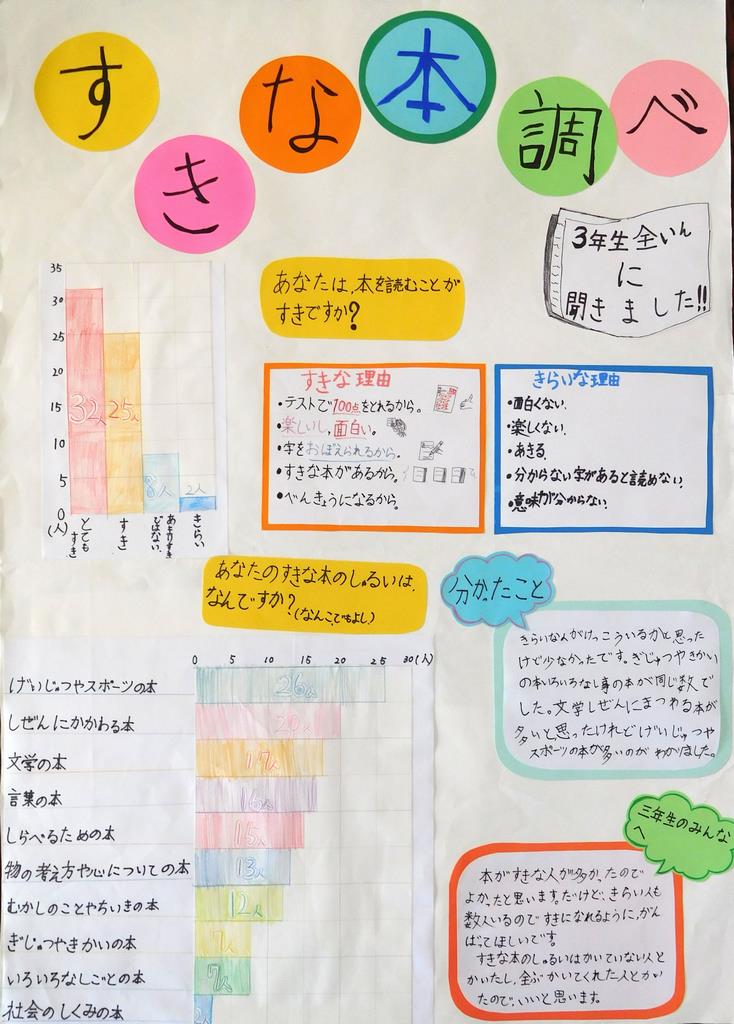 すきな本調べ
3年生全いん
に
聞きました!!
あなたは、本を読むことが
すきですか?
35
30
25
20
15
10
5
0
(人)
32人
25人
8人
2人
とても
すき
すき
あまりすき
ではない
きらい
すきな理由
•テストで100点をとれるから。
•楽しいし、面白い。
•字をおぼえられるから。
•すきな本があるから。
•べんきょうになるから。
きらいな理由
•面白くない。
•楽しくない。
•あきる。
•分からない字があると読めない。
•意味が分からない。
あなたのすきな本のしゅるいは、
なんですか?(なんこでもよし)
0 5 10 15 20 25 30(人)
げいじゅつやスポーツの本 26人
しぜんにかかわる本 20人
文学の本 17人
言葉の本 16人
しらべるための本 15人
物の考え方や心についての本 13人
むかしのことやちいきの本 12人
ぎじゅつやきかいの本 7人
いろいろなしごとの本 7人
社会のしくみの本 2人
分かったこと
きらいな人がけっこういるかと思った
けど少なかったです。ぎじゅつやきかい
の本いろいろなし事の本が同じ数で
した。文学しぜんにまつわる本が
多いと思ったけれどげいじゅつや
スポーツの本が多いのがわかりました。
三年生のみんな
へ
本がすきな人が多かったので
よかったと思います。だけど、きらい人も
数人いるのですきになれるように、がん
ばってほしいです。
すきな本のしゅるいはかいていない人と
かいたし、全ぶかいてくれた人とかい
たので、いいと思います。